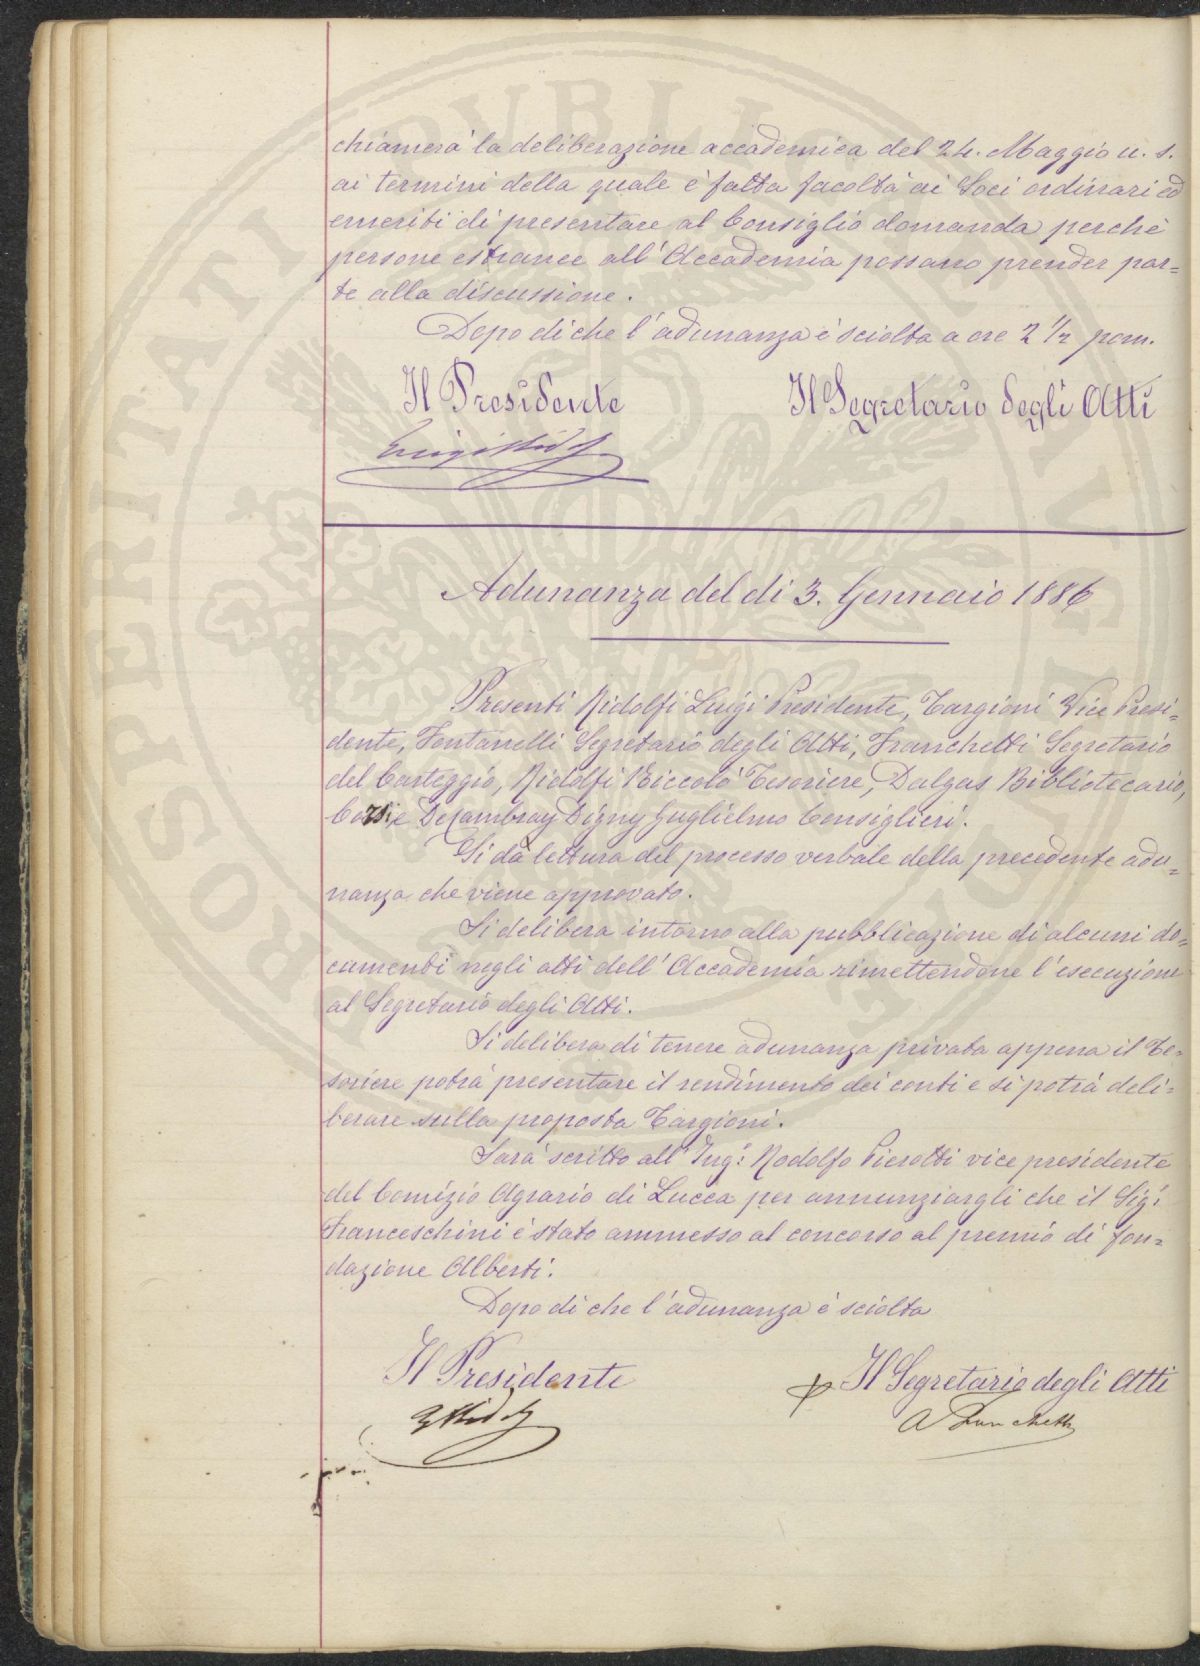 chiamerà la deliberazione accademica del 24. Maggio u. s.
ai termini della quale è fatta facoltà ai Soci ordinari ed
emeriti di presentare al Consiglio domanda perchè
persone estranee all'Accademia possano prender par=
te alla discussione.
Dopo di che l'adunanza è sciolta a ore 2 1/2 pom.
Il Presidente Il Segretario degli Atti
Luigi Ridolfi
Adunanza del di 3. Gennaio 1886
Presenti Ridolfi Luigi Presidente, Targioni Vice Presi=
dente, Fontanelli Segretario degli Atti, Franchetti Segretario
del Carteggio, Ridolfi Niccolò Tesoriere, Dalgas Bibliotecario,
e De Cambray Digny Guglielmo Consiglieri.
Si dà lettura del processo verbale della precedente adu=
nanza che viene approvato.
Si delibera intorno alla pubblicazione di alcuni do=
cumenti negli atti dell'Accademia rimettendone l'esecuzione
al Segretario degli Atti.
Si delibera di tenere adunanza privata appena il Te=
soriere potrà presentare il rendimento dei conti e si potrà deli=
berare sulla proposta Targioni.
Sarà scritto all'Ing: Rodolfo Pierotti vice presidente
del Comizio Agrario di Lucca per annunziargli che il Sig:
Franceschini è stato ammesso al concorso al premio di fon=
dazione Alberti.
Dopo di che l'adunanza è sciolta
Il Presidente p Il Segretario degli Atti
L Ridolfi A Franchetti
PROSPERITATI PVBLICAE AVGENDAE